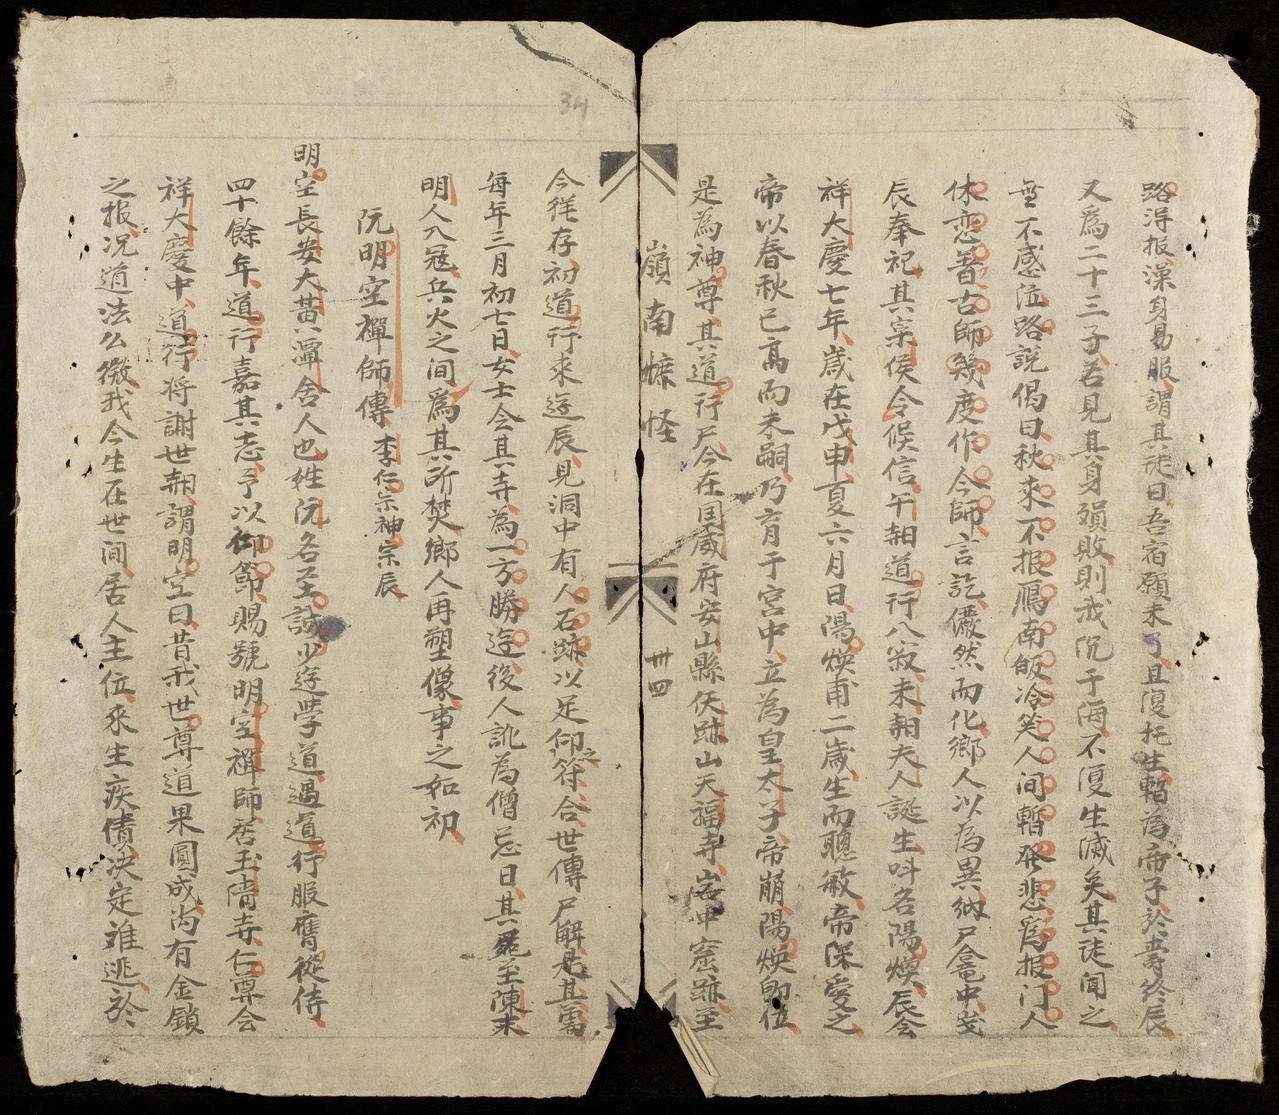 路得报澡身易服謂其徒曰吾宿願未了且復托生暫為帝子於壽終辰
又為二十三子若見其身殞敗則我沉于海不復生滅矣其徒聞之
無不感泣路說偈曰秋來不报鴈南皈冷笑人间暫發悲為报门人
休恋着古師幾度作今師言訖儼然而化鄉人以為異納尸龕中歲
辰奉祀其崇侯令候信午朝道行八寂未朝夫人誕生呌名陽煥辰会
祥大慶七年歲在戊申夏六月日陽煥甫二歲生而聰敏帝深愛之
帝以春秋已高而未嗣乃育于宮中立為皇太子帝崩陽煥卽位
是為神尊其道行尸今在国威府安山縣佚跡山天福寺岩中窓跡至
嶺南慊怪
卅四
今徃存初道行來逰辰見洞中有人石跡以足仰之符合世傳尸解是其處
每年三月初七日女士会其寺為一方勝逰後人訛為僧忌日其屍至陳末
明人入冦兵火之间為其所焚鄉人再塑像事之如初
阮明空禪師傳 李仁宗神宗辰
明空長安大黄潭舍人也姓阮名至誠少逰學道遇道行服膺從侍
四十餘年道行嘉其志予以御節賜號明空禪師居玉清寺仁尊会
祥大慶中道行将謝世朝謂明空曰昔我世尊道果圓成尚有金鎖
之报况道法么微我今生在世间居人主位來生疾債决定难逃於
34